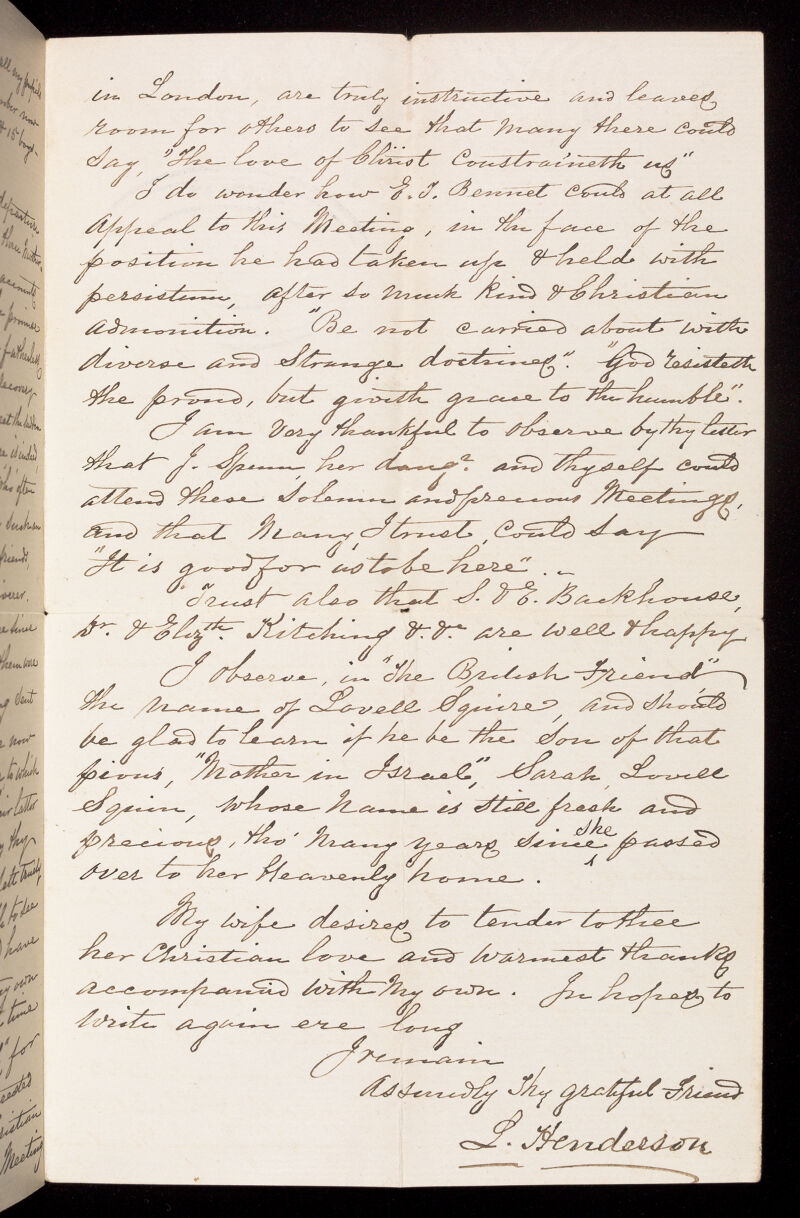 in London, are truly instructive and leaves
room for others to see that many there could
Say, "The love of Christ Constraineth us"
I do wonder how E. T. Bennet could at all
appeal to this Meeting, in the face of the
position he had taken up & held with
persistence, after so much Kind & Christian
admonition. "Be not carried about with
diverse and Strange doctrines". "God resisteth
the proud, but giveth grace to the humble".
I am very thankful to observe by thy letter
that J. her daugr. and thyself could
attend these Solemn and precious Meetings,
and that Many, I trust, could Say
"It is good for us to be here". –
Trust also that S. & E. Backhouse,
Dr. & Elizth. Kitching &. &c are well & happy
I observe, in "The British Friend"
the name of Lovell Squire, and should
be glad to learn if he be the Son of that
pious, "Mother in Israel", Sarah Lovell
Squire, whose Name is still fresh and
precious, tho' Many years since she passed
over to her Heavenly home.
My wife desires to tender to thee
her Christian love and warmest thanks
accompanied with My own. In hopes to
Write again ere long
I remain
Assuredly Thy grateful Friend
L. Henderson
all my
15 boys
accounts
often
friends,
since
them were
sent
now
to which
letter
thy
truly,
to see
have
my own
time
for
Christian
Meeting